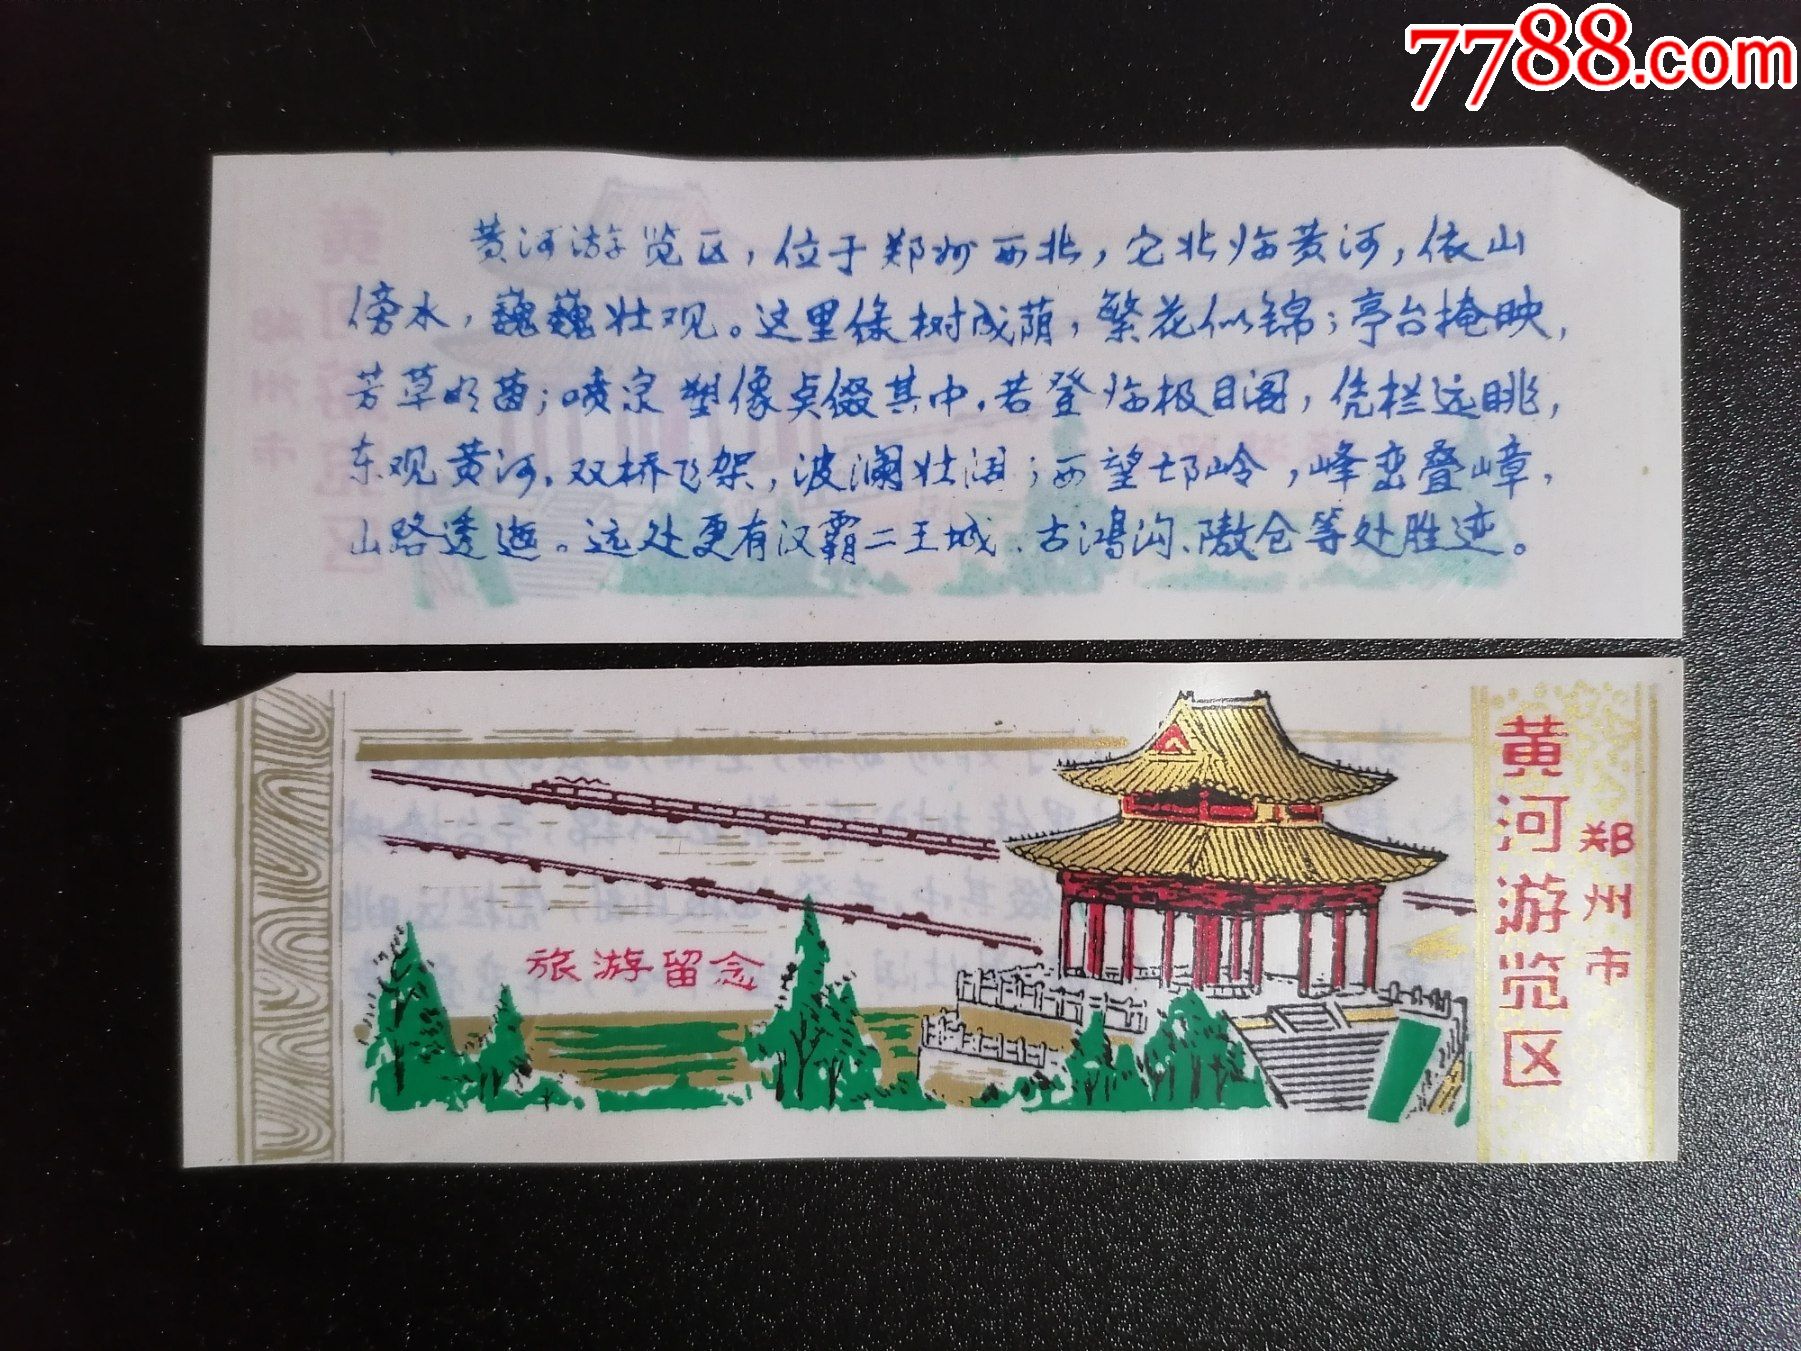 7788.com
黄河游览区，位于郑州西北，它北临黄河，依山
傍水，巍巍壮观。这里绿树成荫，繁花似锦；亭台掩映，
芳草如茵；喷泉塑像点缀其中。若登临极目阁，凭栏远眺，
东观黄河，双桥飞架，波澜壮阔；西望邙岭，峰峦叠嶂，
山路逶迤。远处更有汉霸二王城、古鸿沟、隞仓等处胜迹。
旅游留念
郑州市
黄河游览区